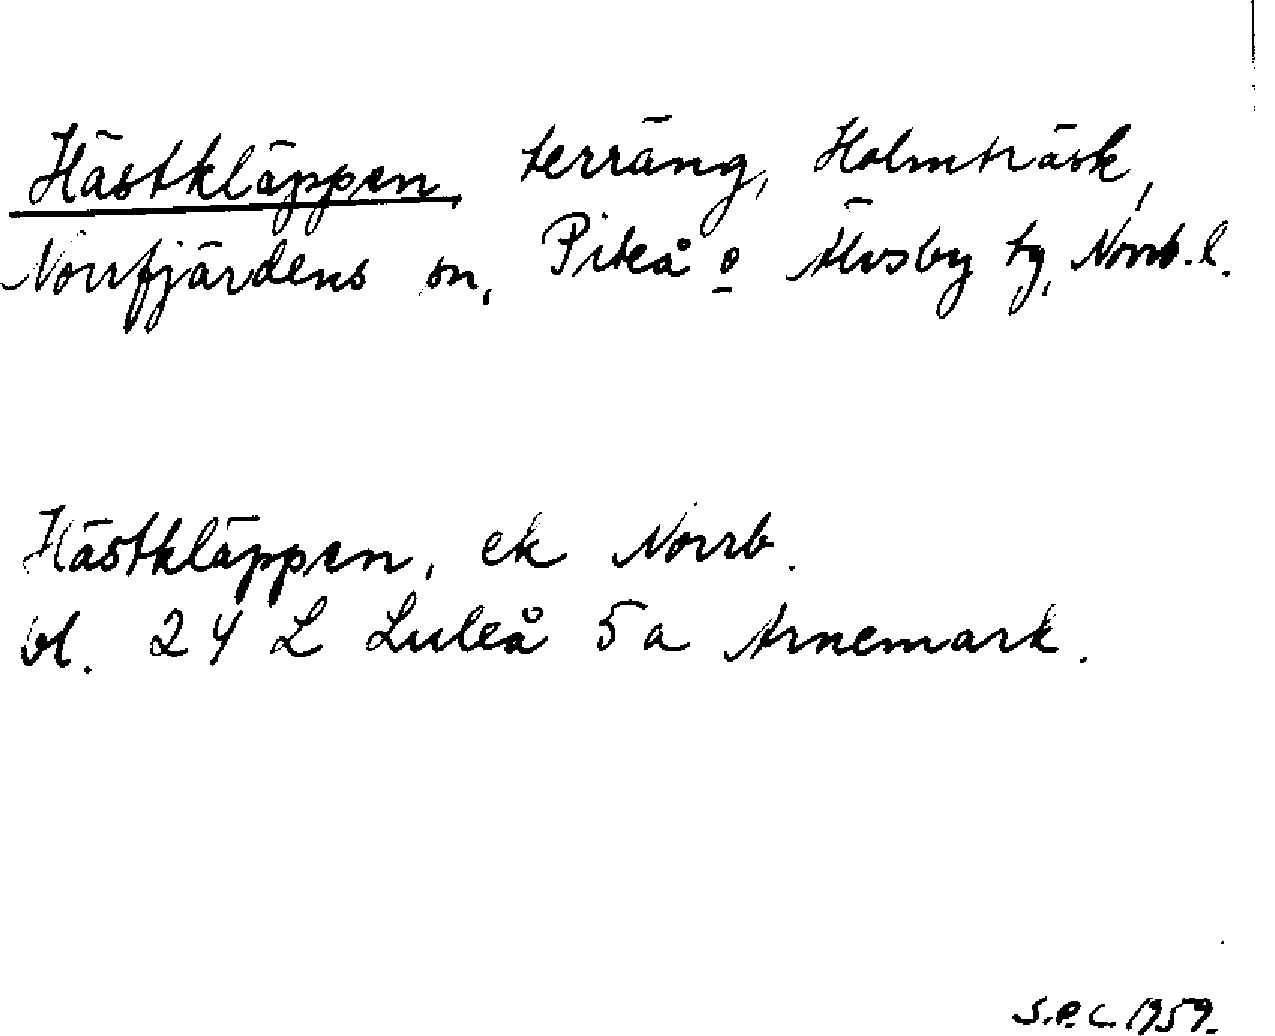 Hästkläppen, terräng, Holmträsk,
Norrfjärdens sn, Piteå o Älvsby tg, Norrb. l.
Hästkläppen, ek Norrb.
bl. 24 L Luleå 5a Arnemark.
S.P.C. 1959.